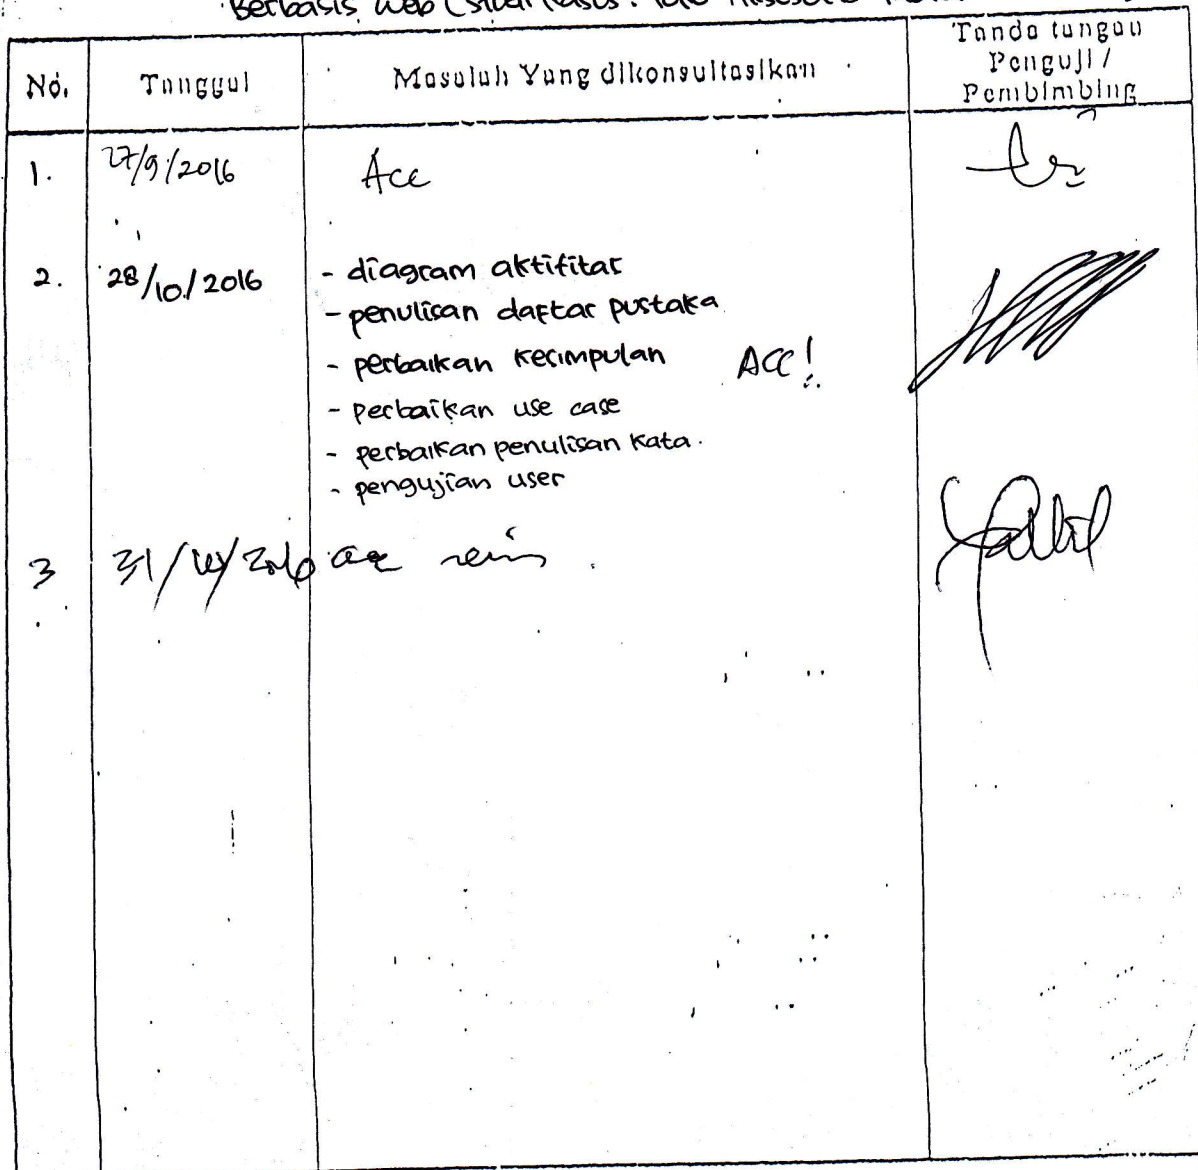 Berbasis Web (Studi Kasus: Toko
No. Tanggal Masalah Yang dikonsultasikan Tanda tangan
Penguji /
Pembimbing
1. 27/9/2016 Acc
2. 28/10/2016 - diagram aktifitas
- penulisan daftar pustaka
- perbaikan kesimpulan ACC!
- perbaikan use case
- perbaikan penulisan kata.
- pengujian user
3 31/10/2016 acc